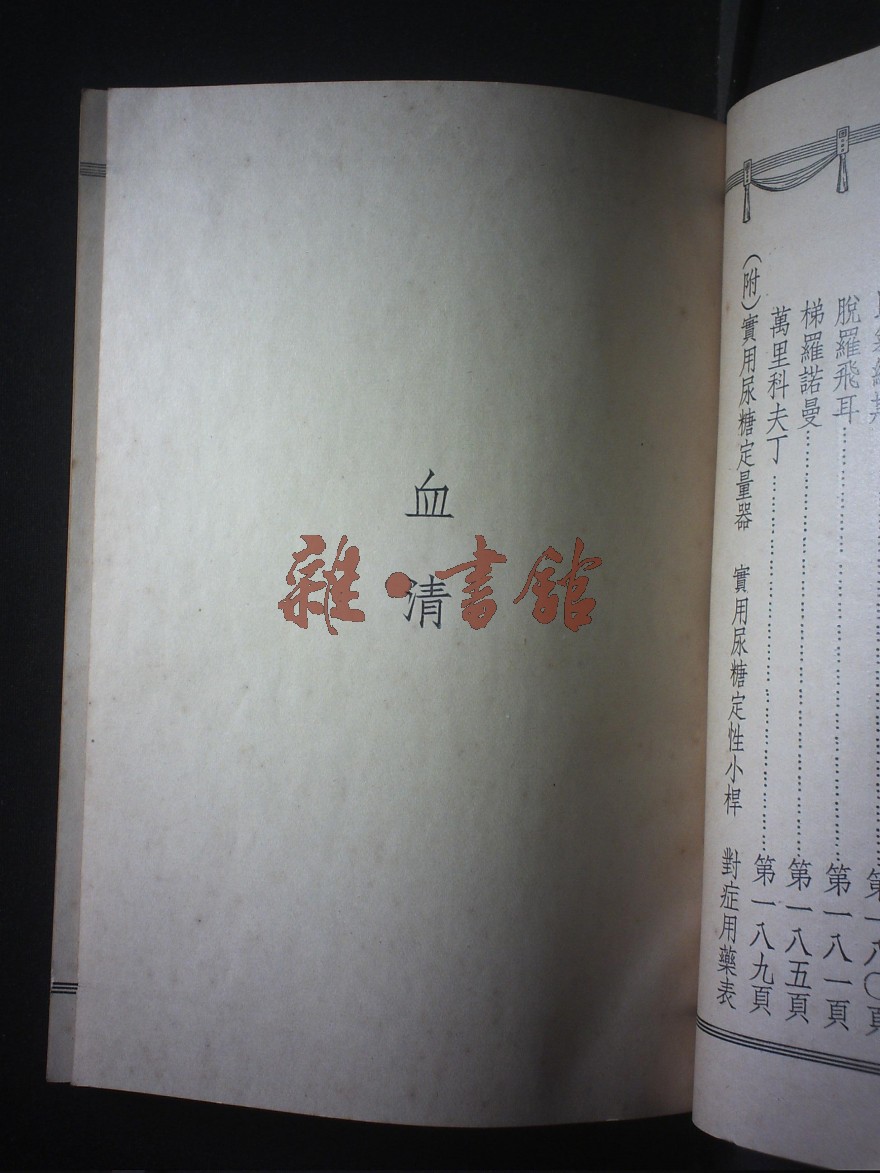 脫羅飛耳 第一八一頁
梯羅諾曼 第一八五頁
萬里科夫丁 第一八九頁
(附)實用尿糖定量器 實用尿糖定性小桿 對症用藥表
血清
雜·書館